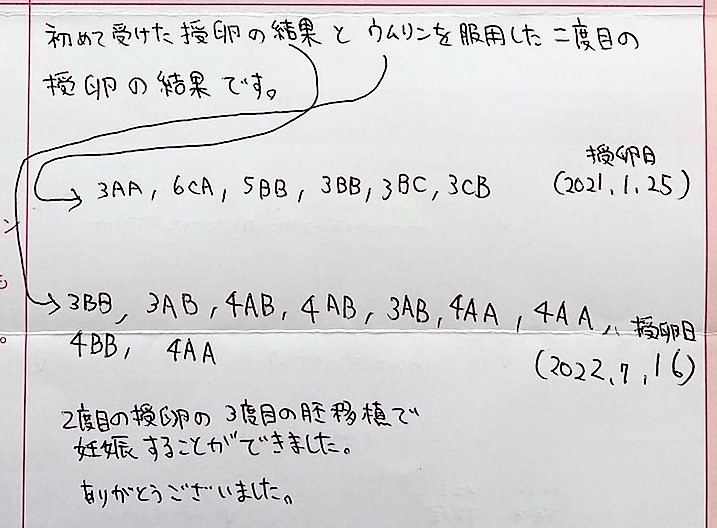 初めて受けた授卵の結果と ウムリンを服用した二度目の
授卵の結果です。
授卵日
3AA, 6CA, 5BB, 3BB, 3BC, 3CB (2021.1.25)
ン
も
。
3BB, 3AB, 4AB, 4AB, 3AB, 4AA, 4AA, 授卵日
4BB, 4AA (2022.7.16)
2度目の授卵の3度目の胚移植で
妊娠することができました。
ありがとうございました。